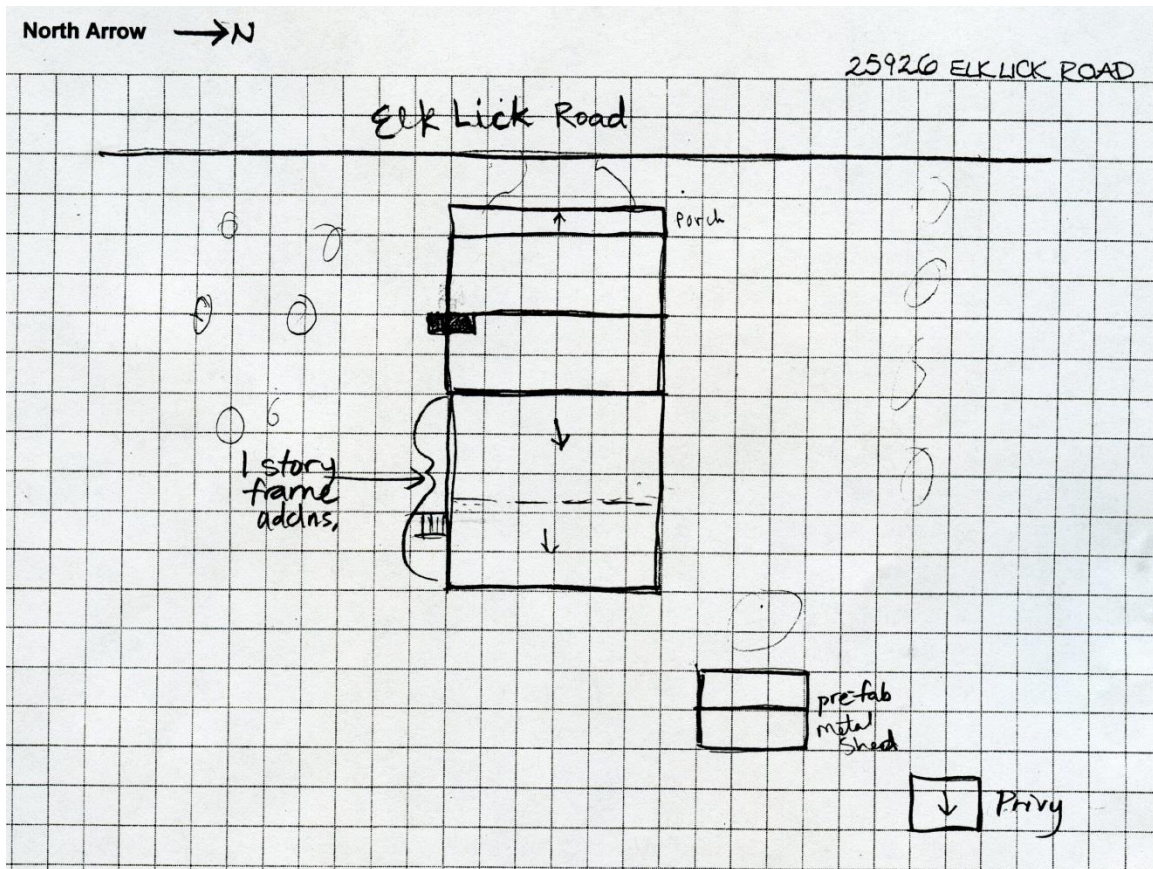 North Arrow → N
25926 ELK LICK ROAD
Elk Lick Road
Porch
1 story
frame
addns.
pre-fab
metal
Shed
Privy